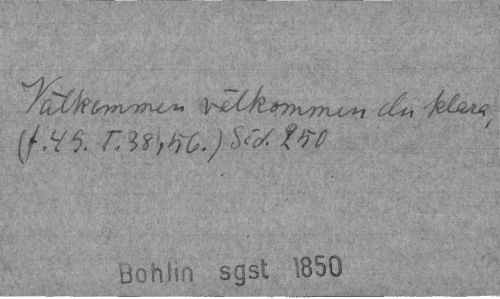 Välkommen välkommen du klara,
(f. 4 S. T. 38, 56.) Sid. 250
Bohlin sgst 1850